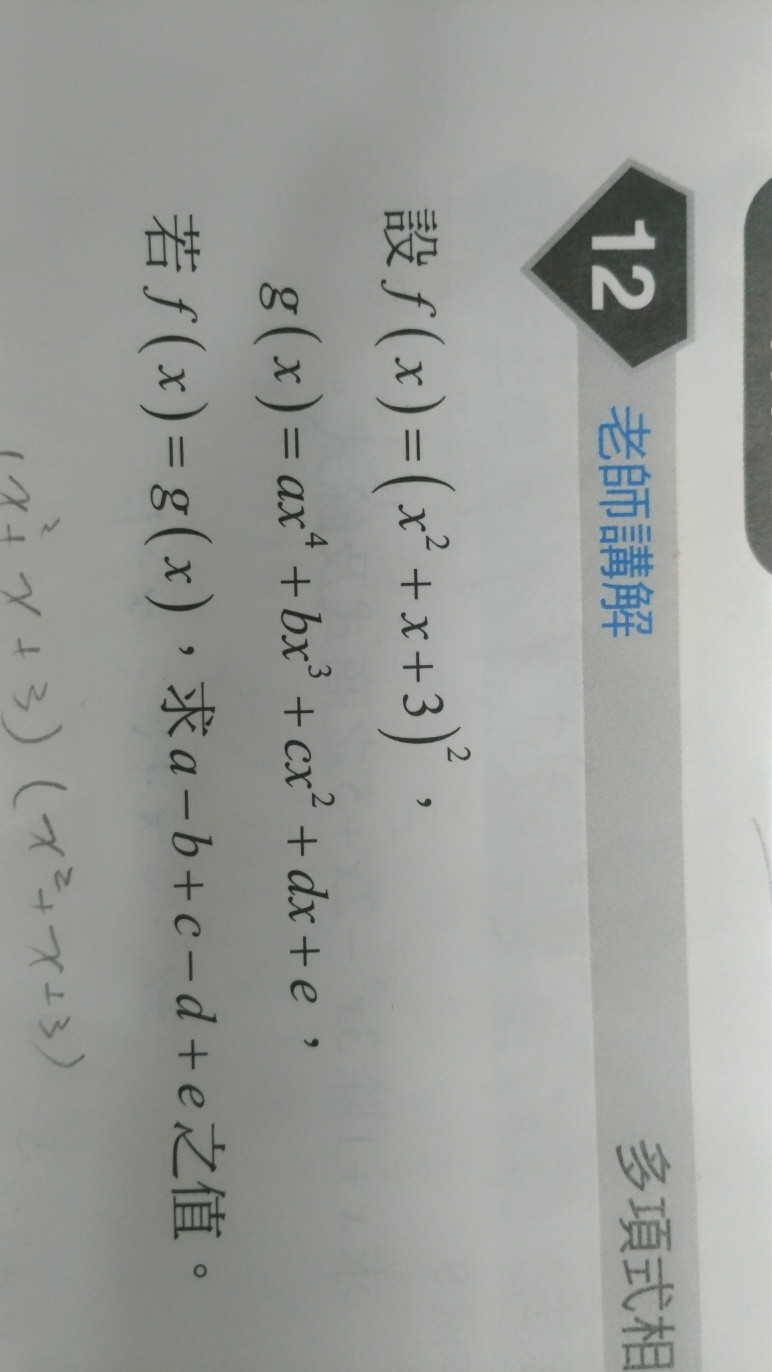 12 老師講解 多項式相
設 f(x)=(x²+x+3)²,
g(x)=ax⁴+bx³+cx²+dx+e,
若 f(x)=g(x),求a-b+c-d+e之值。
(x²+x+3)(x²+x+3)